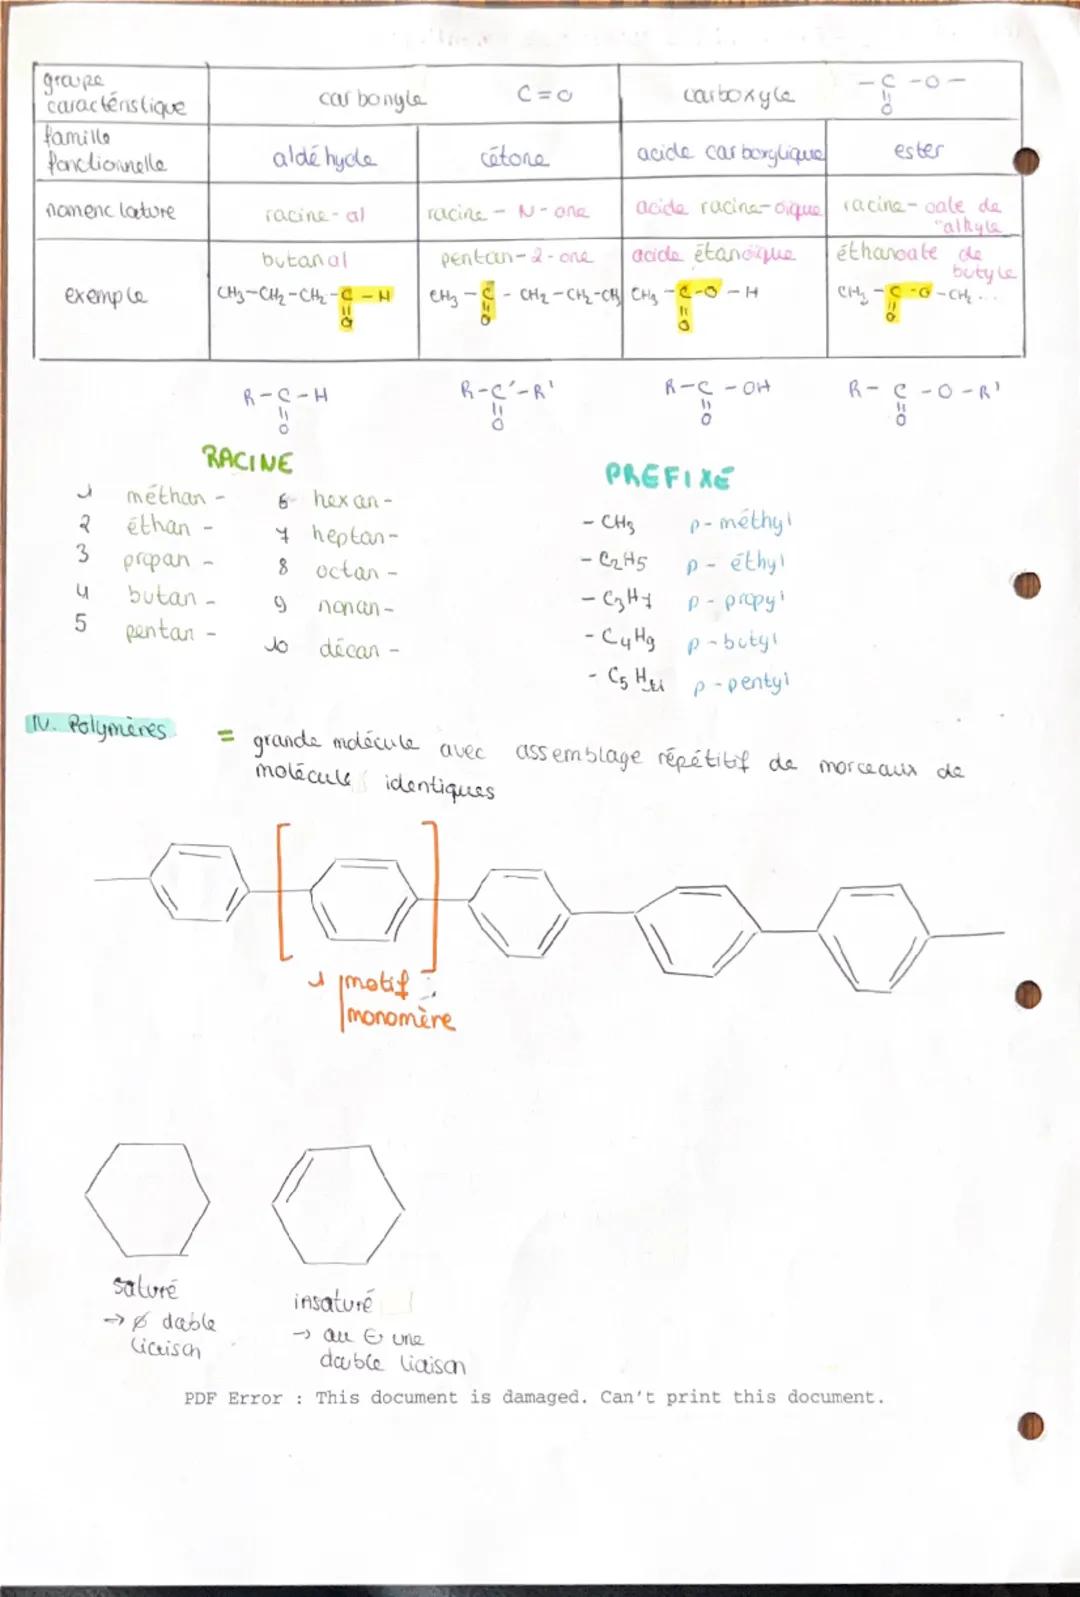 groupe caractéristique carbonyle C=O carboxyle -C-O- || O
famille fonctionnelle aldéhyde cétone acide carboxylique ester
nomenclature racine-al racine-N-one acide racine-oïque racine-oate de "alkyle
exemple butanal pentan-2-one acide étanoïque éthanoate de butyle
CH3-CH2-CH2-C-H || O CH3-C-CH2-CH2-CH3 || O CH3-C-O-H || O CH3-C-O-CH2... || O
R-C-H || O R-C'-R' || O R-C-OH || O R-C-O-R' || O
RACINE
1 méthan-
2 éthan-
3 propan-
4 butan-
5 pentan-
6 hexan-
7 heptan-
8 octan-
9 nonan-
10 décan-
PREFIXE
- CH3 p-méthyl
- C2H5 p-éthyl
- C3H7 p-propyl
- C4H9 p-butyl
- C5H11 p-pentyl
IV. Polymères = grande molécule avec assemblage répétitif de morceaux de
molécule identiques
1 motif :
monomère
saturé
→ ∅ double
liaison
insaturé
→ au ⊖ une
double liaison
PDF Error : This document is damaged. Can't print this document.